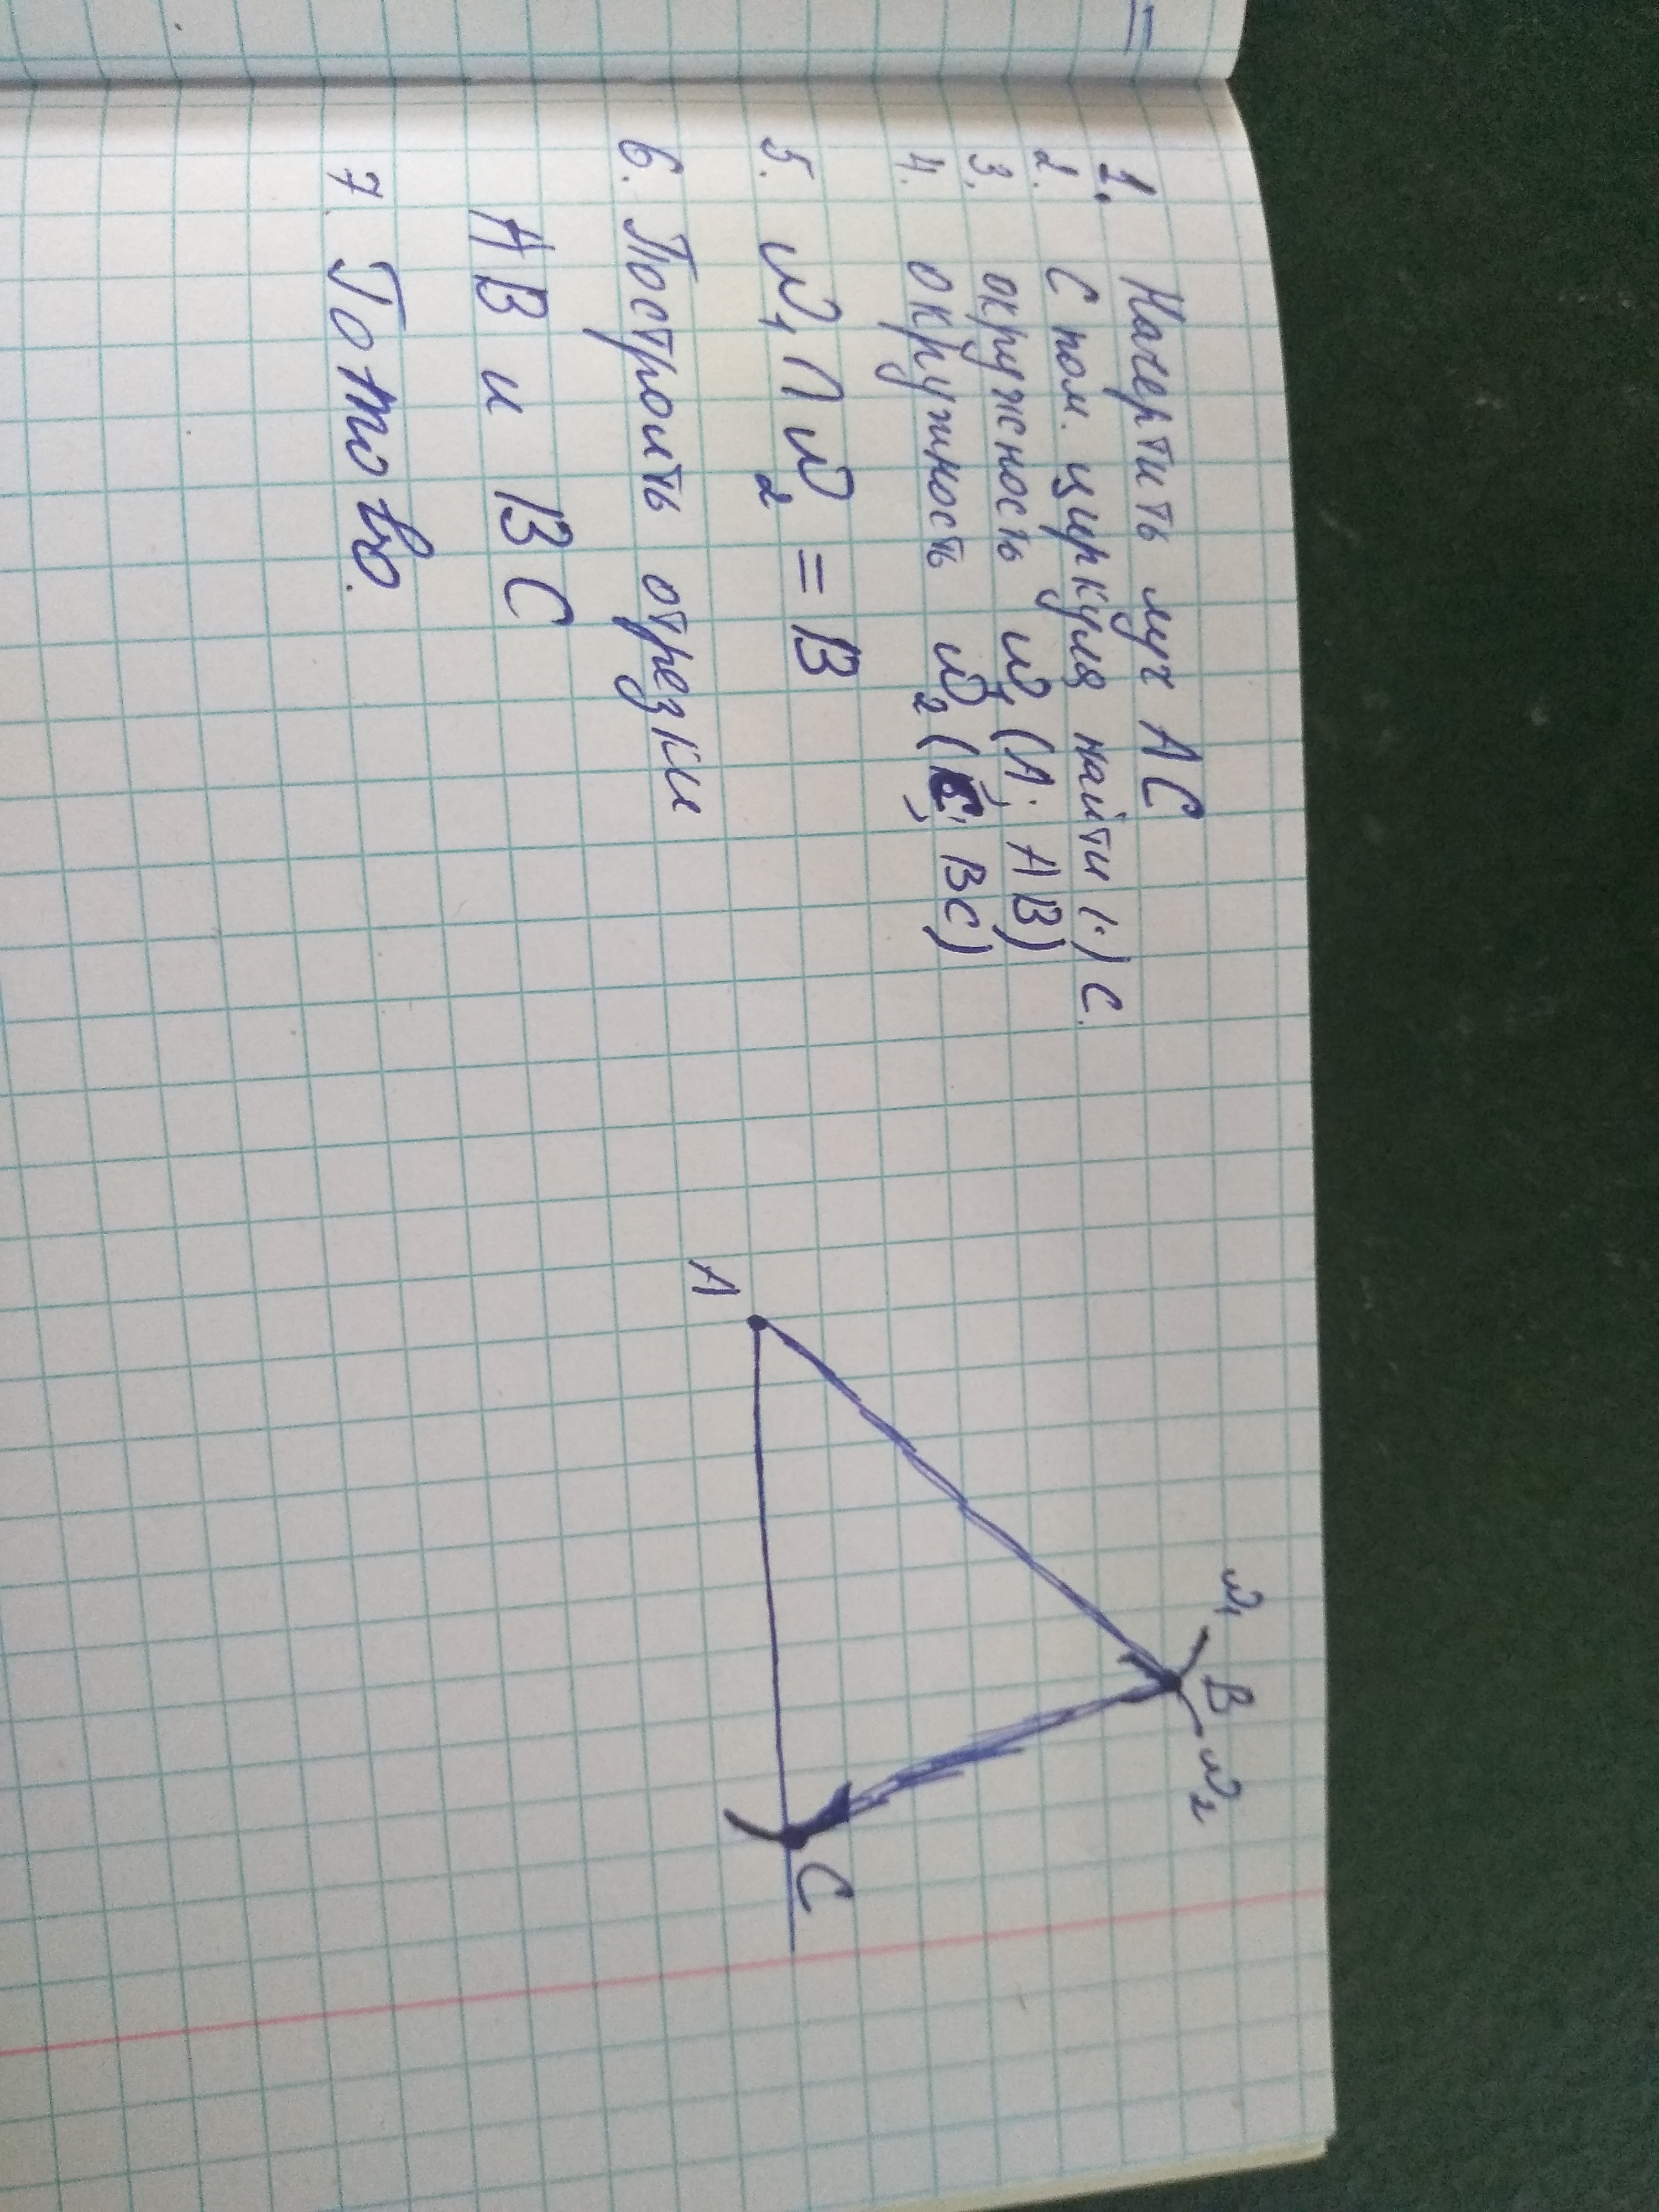 1. Начертить луч AC
2. С пом. циркуля найти (·) C.
3. окружность ω₁ (A; AB)
4. окружность ω₂ (C; BC)
5. ω₁ ∩ ω₂ = B
6. Построить отрезки
AB и BC
7. Готово.
ω₁ B ω₂
A
C
=